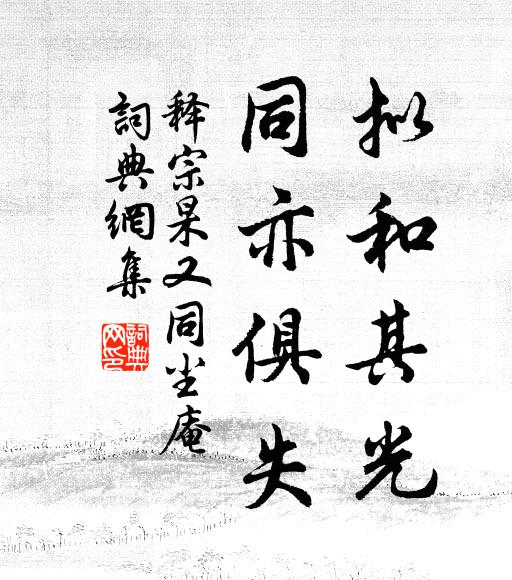 拟和其光
同亦俱失
释宗杲又同尘庵
詞典網集
詞典网印